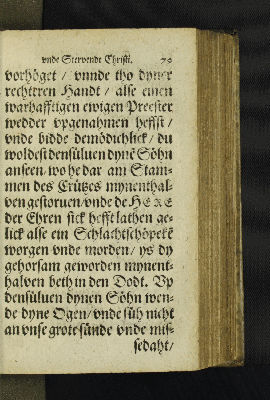 vnde Stervendt Christi. 79
vorhöget / vnnde tho dyner
rechtren Handt / alse einen
warhafftigen ewigen Preester
wedder vpgenahmen heffst /
vnde bidde demödichlick / du
woldest densüluen dynē Söhn
anseen / wo he dar am Stam-
men des Crützes mynenthal-
ven gestoruen / vnde de HERE
der Ehren sick hefft lathen ge-
lick alse ein Schlachtschöpeke
worgen vnde morden / ys dy
gehorsam geworden mynent-
halven beth in den Dodt. Vp
densüluen dynen Söhn wen-
de dyne Ogen / vnde süh nicht
an vnse grote sünde vnde mis-
sedaht /